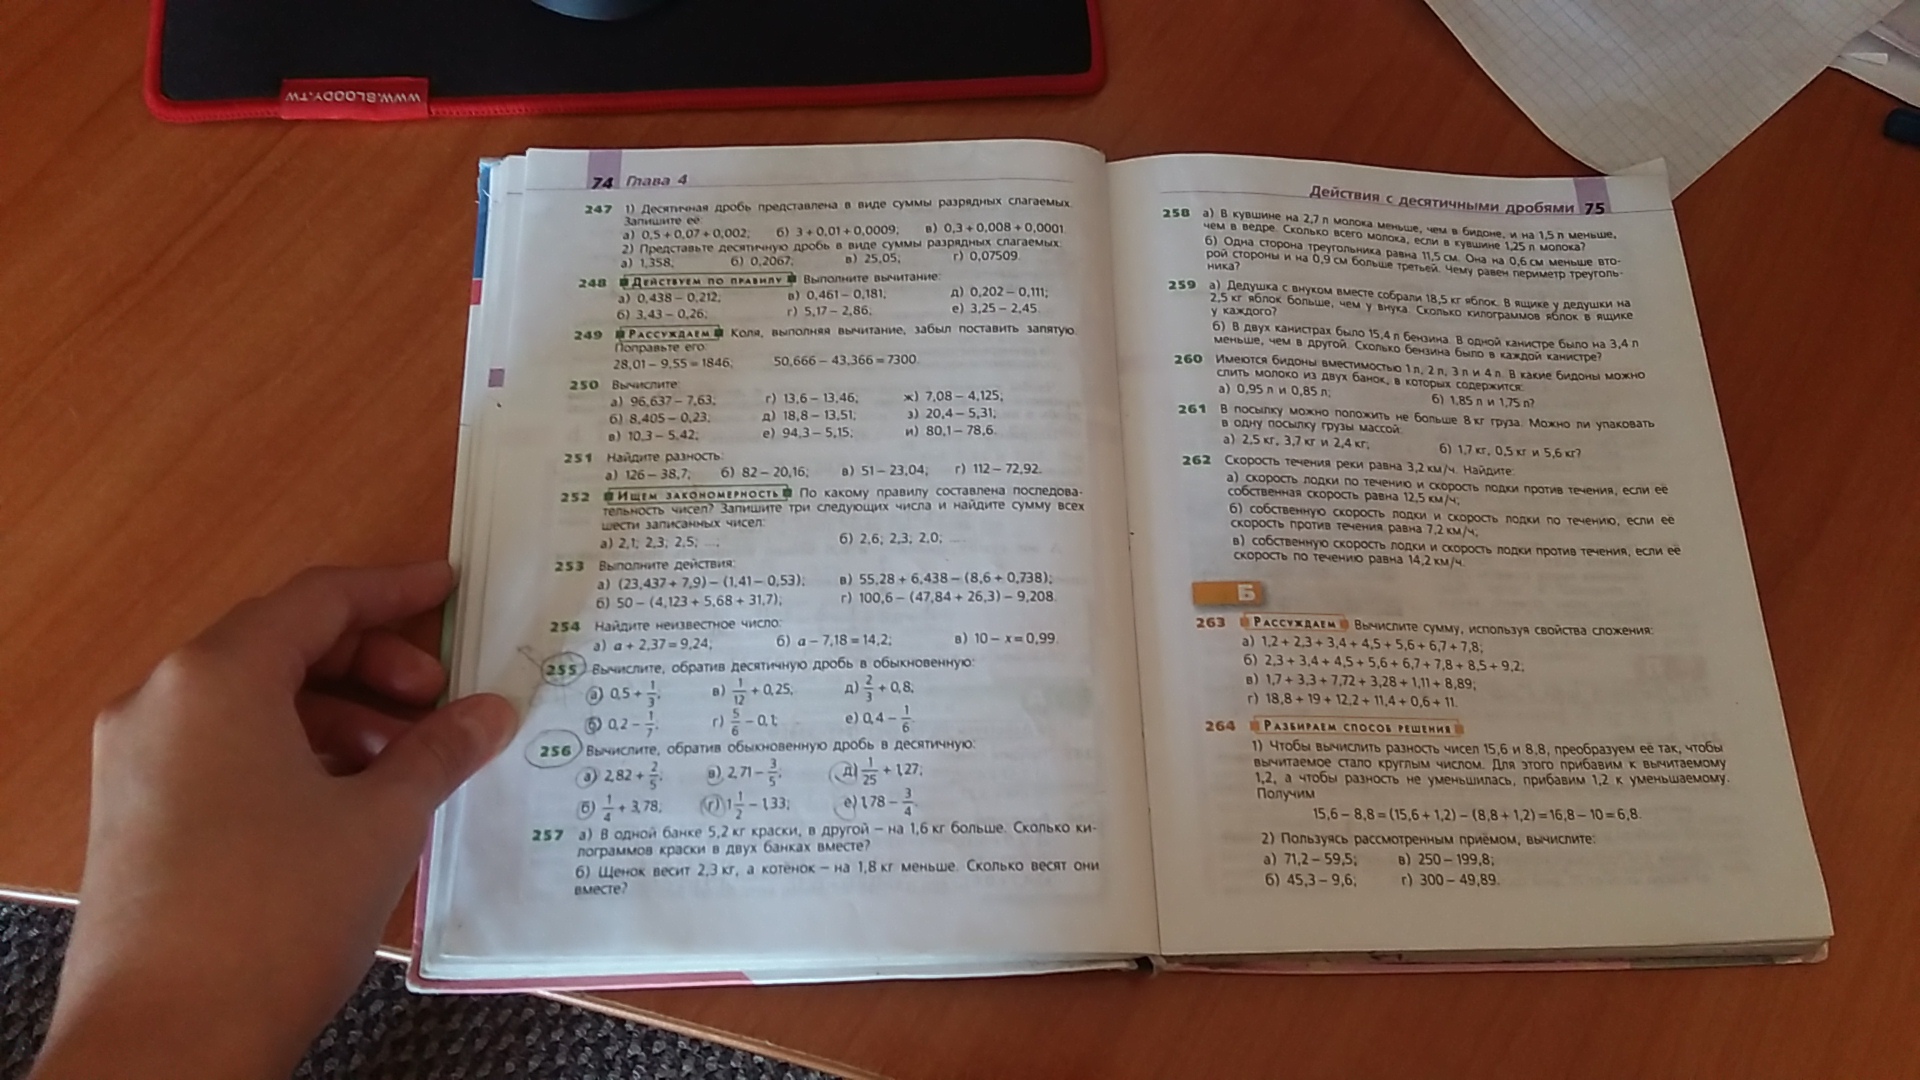 WWW.BLOODY.TW
74 Глава 4
247 1) Десятичная дробь представлена в виде суммы разрядных слагаемых.
Запишите её:
а) 0,5 + 0,07 + 0,002; б) 3 + 0,01 + 0,0009; в) 0,3 + 0,008 + 0,0001.
2) Представьте десятичную дробь в виде суммы разрядных слагаемых:
а) 1,358; б) 0,2067; в) 25,05; г) 0,07509.
248 ДЕЙСТВУЕМ ПО ПРАВИЛУ Выполните вычитание:
а) 0,438 – 0,212; в) 0,461 – 0,181; д) 0,202 – 0,111;
б) 3,43 – 0,26; г) 5,17 – 2,86; е) 3,25 – 2,45.
249 РАССУЖДАЕМ Коля, выполняя вычитание, забыл поставить запятую.
Поправьте его:
28,01 – 9,55 = 1846; 50,666 – 43,366 = 7300.
250 Вычислите:
а) 96,637 – 7,63; г) 13,6 – 13,46; ж) 7,08 – 4,125;
б) 8,405 – 0,23; д) 18,8 – 13,51; з) 20,4 – 5,31;
в) 10,3 – 5,42; е) 94,3 – 5,15; и) 80,1 – 78,6.
251 Найдите разность:
а) 126 – 38,7; б) 82 – 20,16; в) 51 – 23,04; г) 112 – 72,92.
252 ИЩЕМ ЗАКОНОМЕРНОСТЬ По какому правилу составлена последова-
тельность чисел? Запишите три следующих числа и найдите сумму всех
шести записанных чисел:
а) 2,1; 2,3; 2,5; ...; б) 2,6; 2,3; 2,0; ....
253 Выполните действия:
а) (23,437 + 7,9) – (1,41 – 0,53); в) 55,28 + 6,438 – (8,6 + 0,738);
б) 50 – (4,123 + 5,68 + 31,7); г) 100,6 – (47,84 + 26,3) – 9,208.
254 Найдите неизвестное число:
а) a + 2,37 = 9,24; б) a – 7,18 = 14,2; в) 10 – x = 0,99.
255 Вычислите, обратив десятичную дробь в обыкновенную:
а) 0,5 + 1/3; в) 1/12 + 0,25; д) 2/3 + 0,8;
б) 0,2 – 1/7; г) 5/6 – 0,1; е) 0,4 – 1/6.
256 Вычислите, обратив обыкновенную дробь в десятичную:
а) 2,82 + 2/5; в) 2,71 – 3/5; д) 1/25 + 1,27;
б) 1/4 + 3,78; г) 1 1/2 – 1,33; е) 1,78 – 3/4.
257 а) В одной банке 5,2 кг краски, в другой – на 1,6 кг больше. Сколько ки-
лограммов краски в двух банках вместе?
б) Щенок весит 2,3 кг, а котёнок – на 1,8 кг меньше. Сколько весят они
вместе?
Действия с десятичными дробями 75
258 а) В кувшине на 2,7 л молока меньше, чем в бидоне, и на 1,5 л меньше,
чем в ведре. Сколько всего молока, если в кувшине 1,25 л молока?
б) Одна сторона треугольника равна 11,5 см. Она на 0,6 см меньше вто-
рой стороны и на 0,9 см больше третьей. Чему равен периметр треуголь-
ника?
259 а) Дедушка с внуком вместе собрали 18,5 кг яблок. В ящике у дедушки на
2,5 кг яблок больше, чем у внука. Сколько килограммов яблок в ящике
у каждого?
б) В двух канистрах было 15,4 л бензина. В одной канистре было на 3,4 л
меньше, чем в другой. Сколько бензина было в каждой канистре?
260 Имеются бидоны вместимостью 1 л, 2 л, 3 л и 4 л. В какие бидоны можно
слить молоко из двух банок, в которых содержится:
а) 0,95 л и 0,85 л; б) 1,85 л и 1,75 л?
261 В посылку можно положить не больше 8 кг груза. Можно ли упаковать
в одну посылку грузы массой:
а) 2,5 кг, 3,7 кг и 2,4 кг; б) 1,7 кг, 0,5 кг и 5,6 кг?
262 Скорость течения реки равна 3,2 км/ч. Найдите:
а) скорость лодки по течению и скорость лодки против течения, если её
собственная скорость равна 12,5 км/ч;
б) собственную скорость лодки и скорость лодки по течению, если её
скорость против течения равна 7,2 км/ч;
в) собственную скорость лодки и скорость лодки против течения, если её
скорость по течению равна 14,2 км/ч.
Б
263 РАССУЖДАЕМ Вычислите сумму, используя свойства сложения:
а) 1,2 + 2,3 + 3,4 + 4,5 + 5,6 + 6,7 + 7,8;
б) 2,3 + 3,4 + 4,5 + 5,6 + 6,7 + 7,8 + 8,5 + 9,2;
в) 1,7 + 3,3 + 7,72 + 3,28 + 1,11 + 8,89;
г) 18,8 + 19 + 12,2 + 11,4 + 0,6 + 11.
264 РАЗБИРАЕМ СПОСОБ РЕШЕНИЯ
1) Чтобы вычислить разность чисел 15,6 и 8,8, преобразуем её так, чтобы
вычитаемое стало круглым числом. Для этого прибавим к вычитаемому
1,2, а чтобы разность не уменьшилась, прибавим 1,2 к уменьшаемому.
Получим
15,6 – 8,8 = (15,6 + 1,2) – (8,8 + 1,2) = 16,8 – 10 = 6,8.
2) Пользуясь рассмотренным приёмом, вычислите:
а) 71,2 – 59,5; в) 250 – 199,8;
б) 45,3 – 9,6; г) 300 – 49,89.